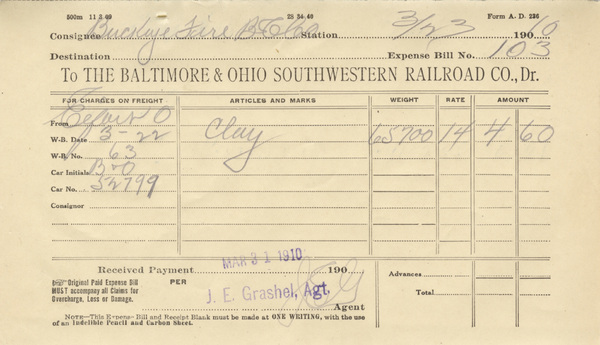 500m 11 3 09 28 54 40 Form A. D. 236
Consignee Buckeye Fire B & C Co Station 3/23 190 0
Destination Expense Bill No. 103
To THE BALTIMORE & OHIO SOUTHWESTERN RAILROAD CO., Dr.
FOR CHARGES ON FREIGHT ARTICLES AND MARKS WEIGHT RATE AMOUNT
From O
W-B. Date 3-22 Clay 65700 14 4 60
W-B. No. 63
Car Initials B&O
Car No. 52799
Consignor
MAR 31 1910
Received Payment 190
Original Paid Expense Bill
MUST accompany all Claims for
Overcharge, Loss or Damage.
PER
J. E. Grashel, Agt.
Agent
Advances
Total
NOTE—This Expense Bill and Receipt Blank must be made at ONE WRITING, with the use
of an Indelible Pencil and Carbon Sheet.